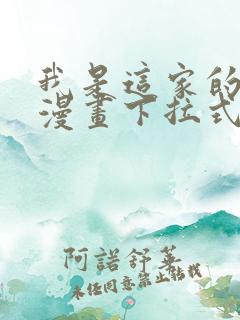 我是這家的
漫畫下拉式
阿諾舒華
未經同意禁止轉載